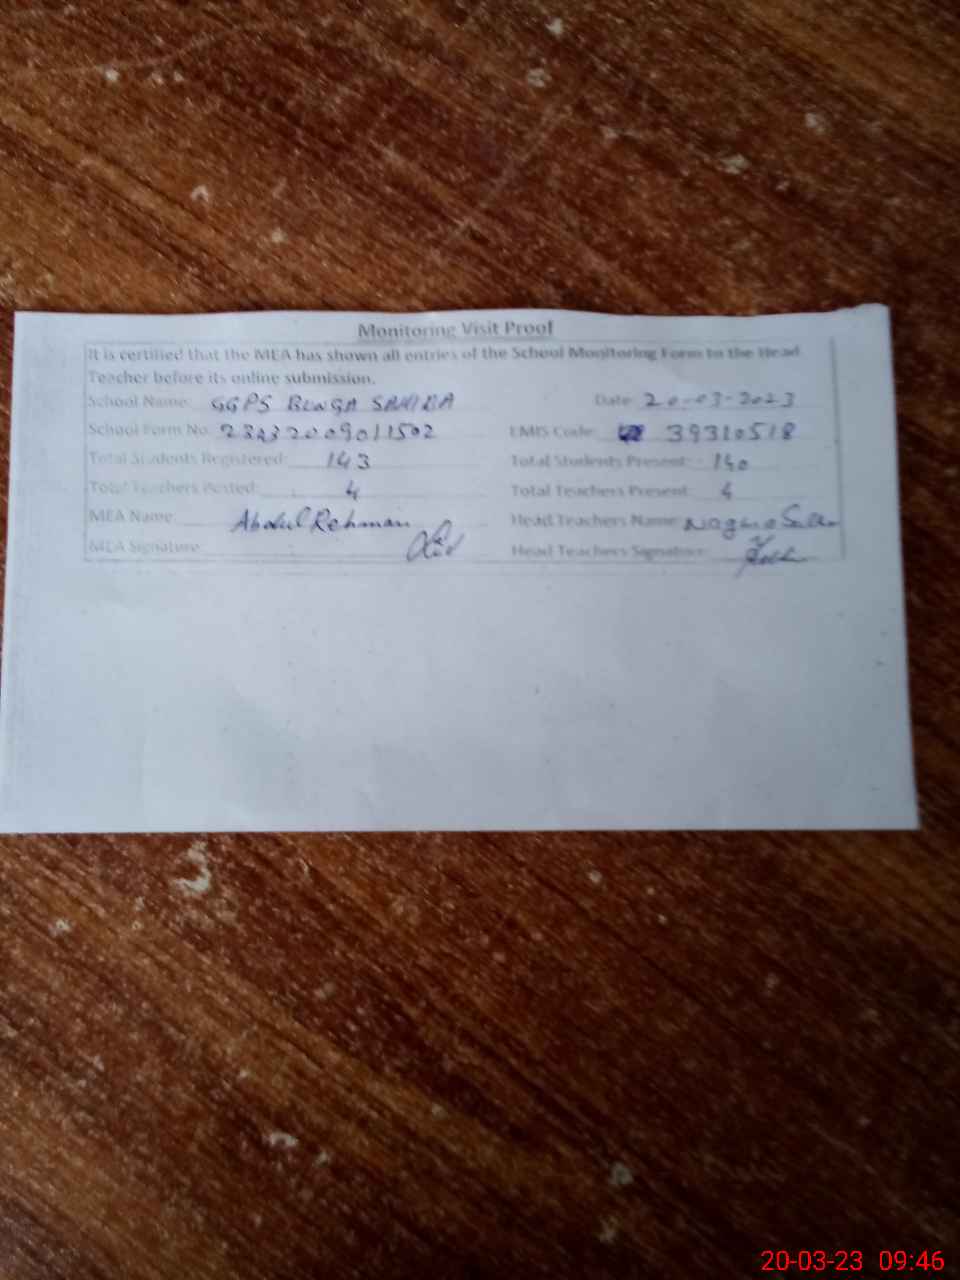 Monitoring Visit Proof
It is certified that the MEA has shown all entries of the School Monitoring Form to the Head
Teacher before its online submission.
School Name: GGPS BUNGA SAHIBA Date: 20-03-2023
School Form No: 23232009011502 EMIS Code: 39310518
Total Students Registered: 143 Total Students Present: 140
Total Teachers Posted: 4 Total Teachers Present: 4
MEA Name: Abdul Rehman Head Teachers Name:
MEA Signature: Head Teachers Signature:
20-03-23 09:46